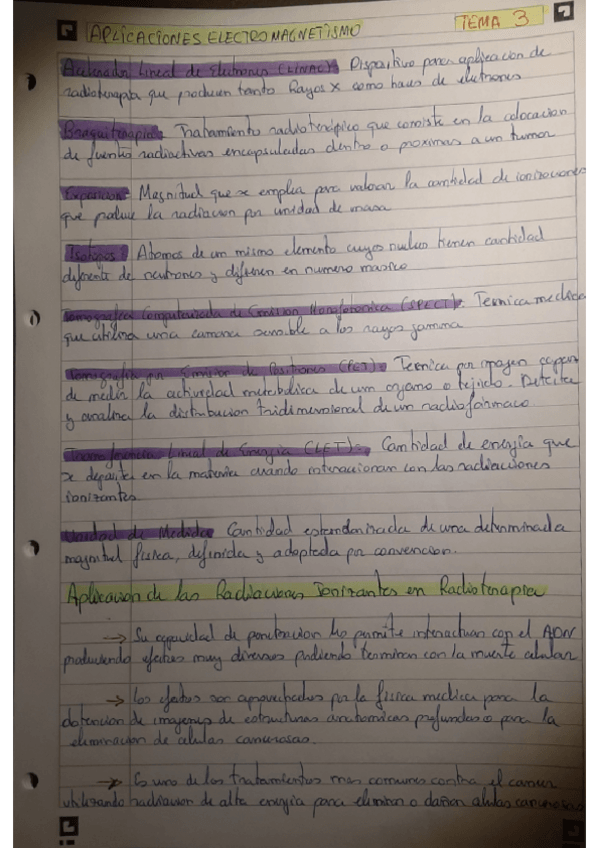 APLICACIONES ELECTROMAGNETISMO
TEMA 3
Acelerador Lineal de Electrones (LINAC): Dispositivo para aplicacion de
radioterapia que producen tanto Rayos X como haces de electrones
Braquiterapia: Tratamiento radioterápico que consiste en la colocacion
de fuentes radiactivas encapsuladas dentro o proximas a un tumor
Exposicion: Magnitud que se emplea para valorar la cantidad de ionizaciones
que produce la radiacion por unidad de masa
Isotopos: Atomos de un mismo elemento cuyos nucleo tienen cantidad
diferente de neutrones y difieren en numero masico
Tomografia Computarizada de Emision Monofotonica (SPECT): Tecnica medica
que utiliza una camara sensible a los rayos gamma
Tomografia por Emision de Positrones (PET): Tecnica por imagen capaz
de medir la actividad metabolica de un organo o tejido. Detecta
y analiza la distribucion tridimensional de un radiofármaco
Transferencia Lineal de Energia (LET): Cantidad de energia que
se deposita en la materia cuando interaccionan con las radiaciones
ionizantes
Unidad de Medida: Cantidad estandarizada de una determinada
magnitud fisica, definida y adoptada por convencion.
Aplicacion de las Radiaciones Ionizantes en Radioterapia
→ Su capacidad de penetracion les permite interactuar con el ADN
produciendo efectos muy diversos pudiendo terminar con la muerte celular
→ Los efectos son aprovechados por la fisica medica para la
obtencion de imagenes de estructuras anatomicas profundas o para la
eliminacion de celulas cancerosas.
→ Es uno de los tratamientos mas comunes contra el cancer
utilizando radiacion de alta energia para eliminar o dañar celulas cancerosas